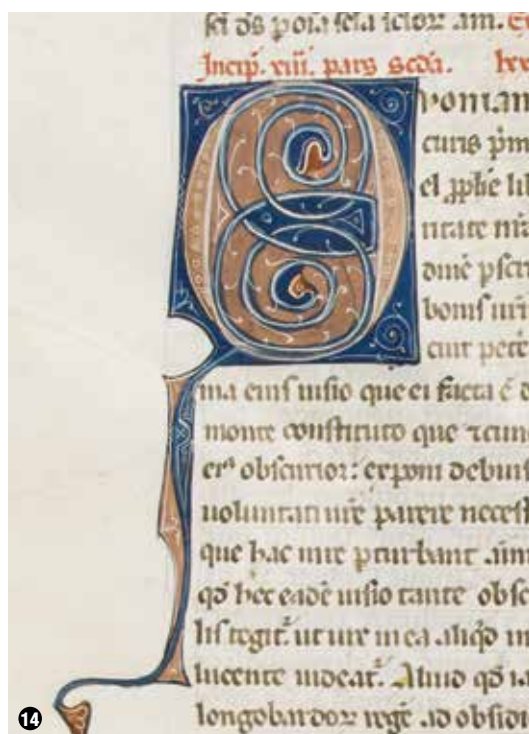 sci ds p oia scla sclor am. Ex
Incip. xiii. pars scda.
Quoniam
curis pm
el pphe lib
ritate
dine pscr
bonis uri
cuit pete
ma eius uisio que ei facta ē d
monte constituto que
obscurior: exponi debuis
uoluntati ure parere necess
que hac in re pturbant anim
qd hec eadē uisio tante obsc
lis tegit. ut uix in ea aliqd in
lucente uideat. Aliud qd ia
longobardor regē ad obsidi
14